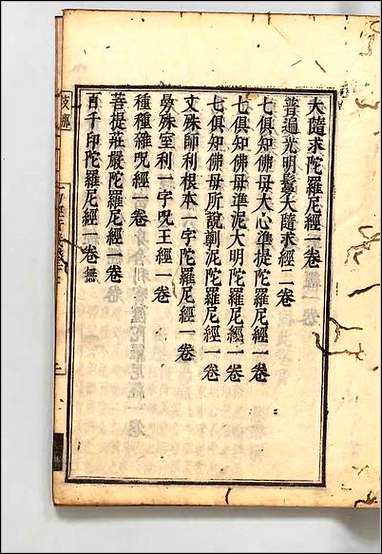 大隨求陀羅尼經一卷
普遍光明鬘大隨求經二卷
七俱知佛母大心準提陀羅尼經一卷
七俱知佛母準泥大明陀羅尼經一卷
七俱知佛母所說凖泥陀羅尼經一卷
文殊師利根本一字陀羅尼經一卷
曼殊室利一字呪王經一卷
種種雜呪經一卷
菩提莊嚴陀羅尼經一卷
百千印陀羅尼經一卷